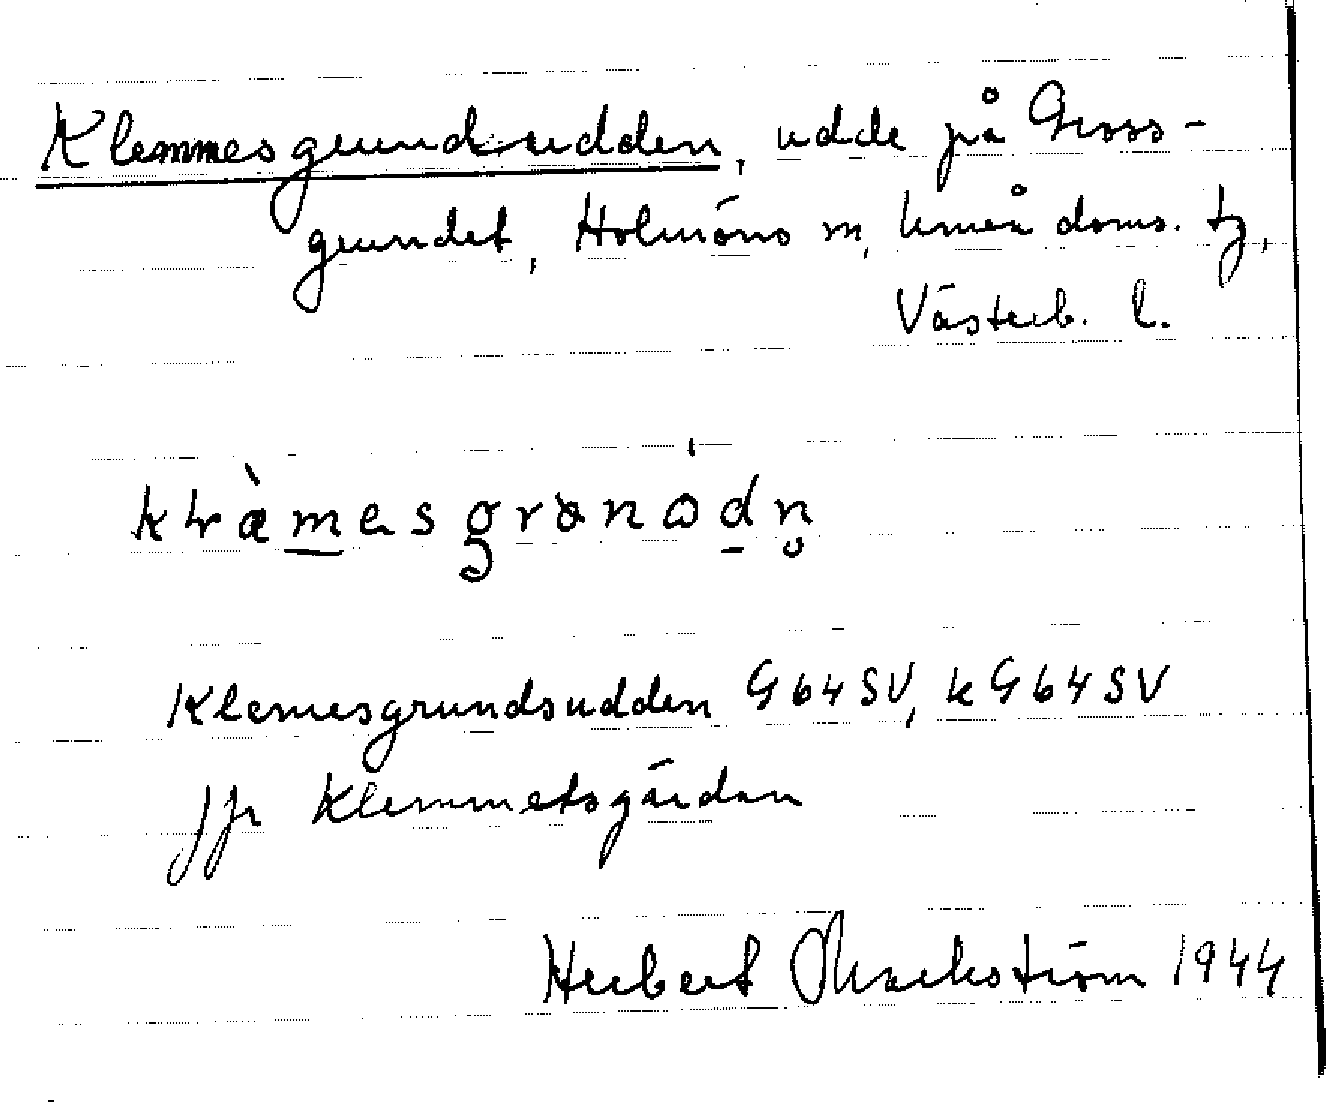 Klemmesgrundsudden, udde på Gross-
grundet, Holmöns sn, Umeå doms. tg,
Västerb. l.
Klemesgrundsudden G64SV, kG64SV
jfr Klemmetsgärdan
Herbert Markström 1944